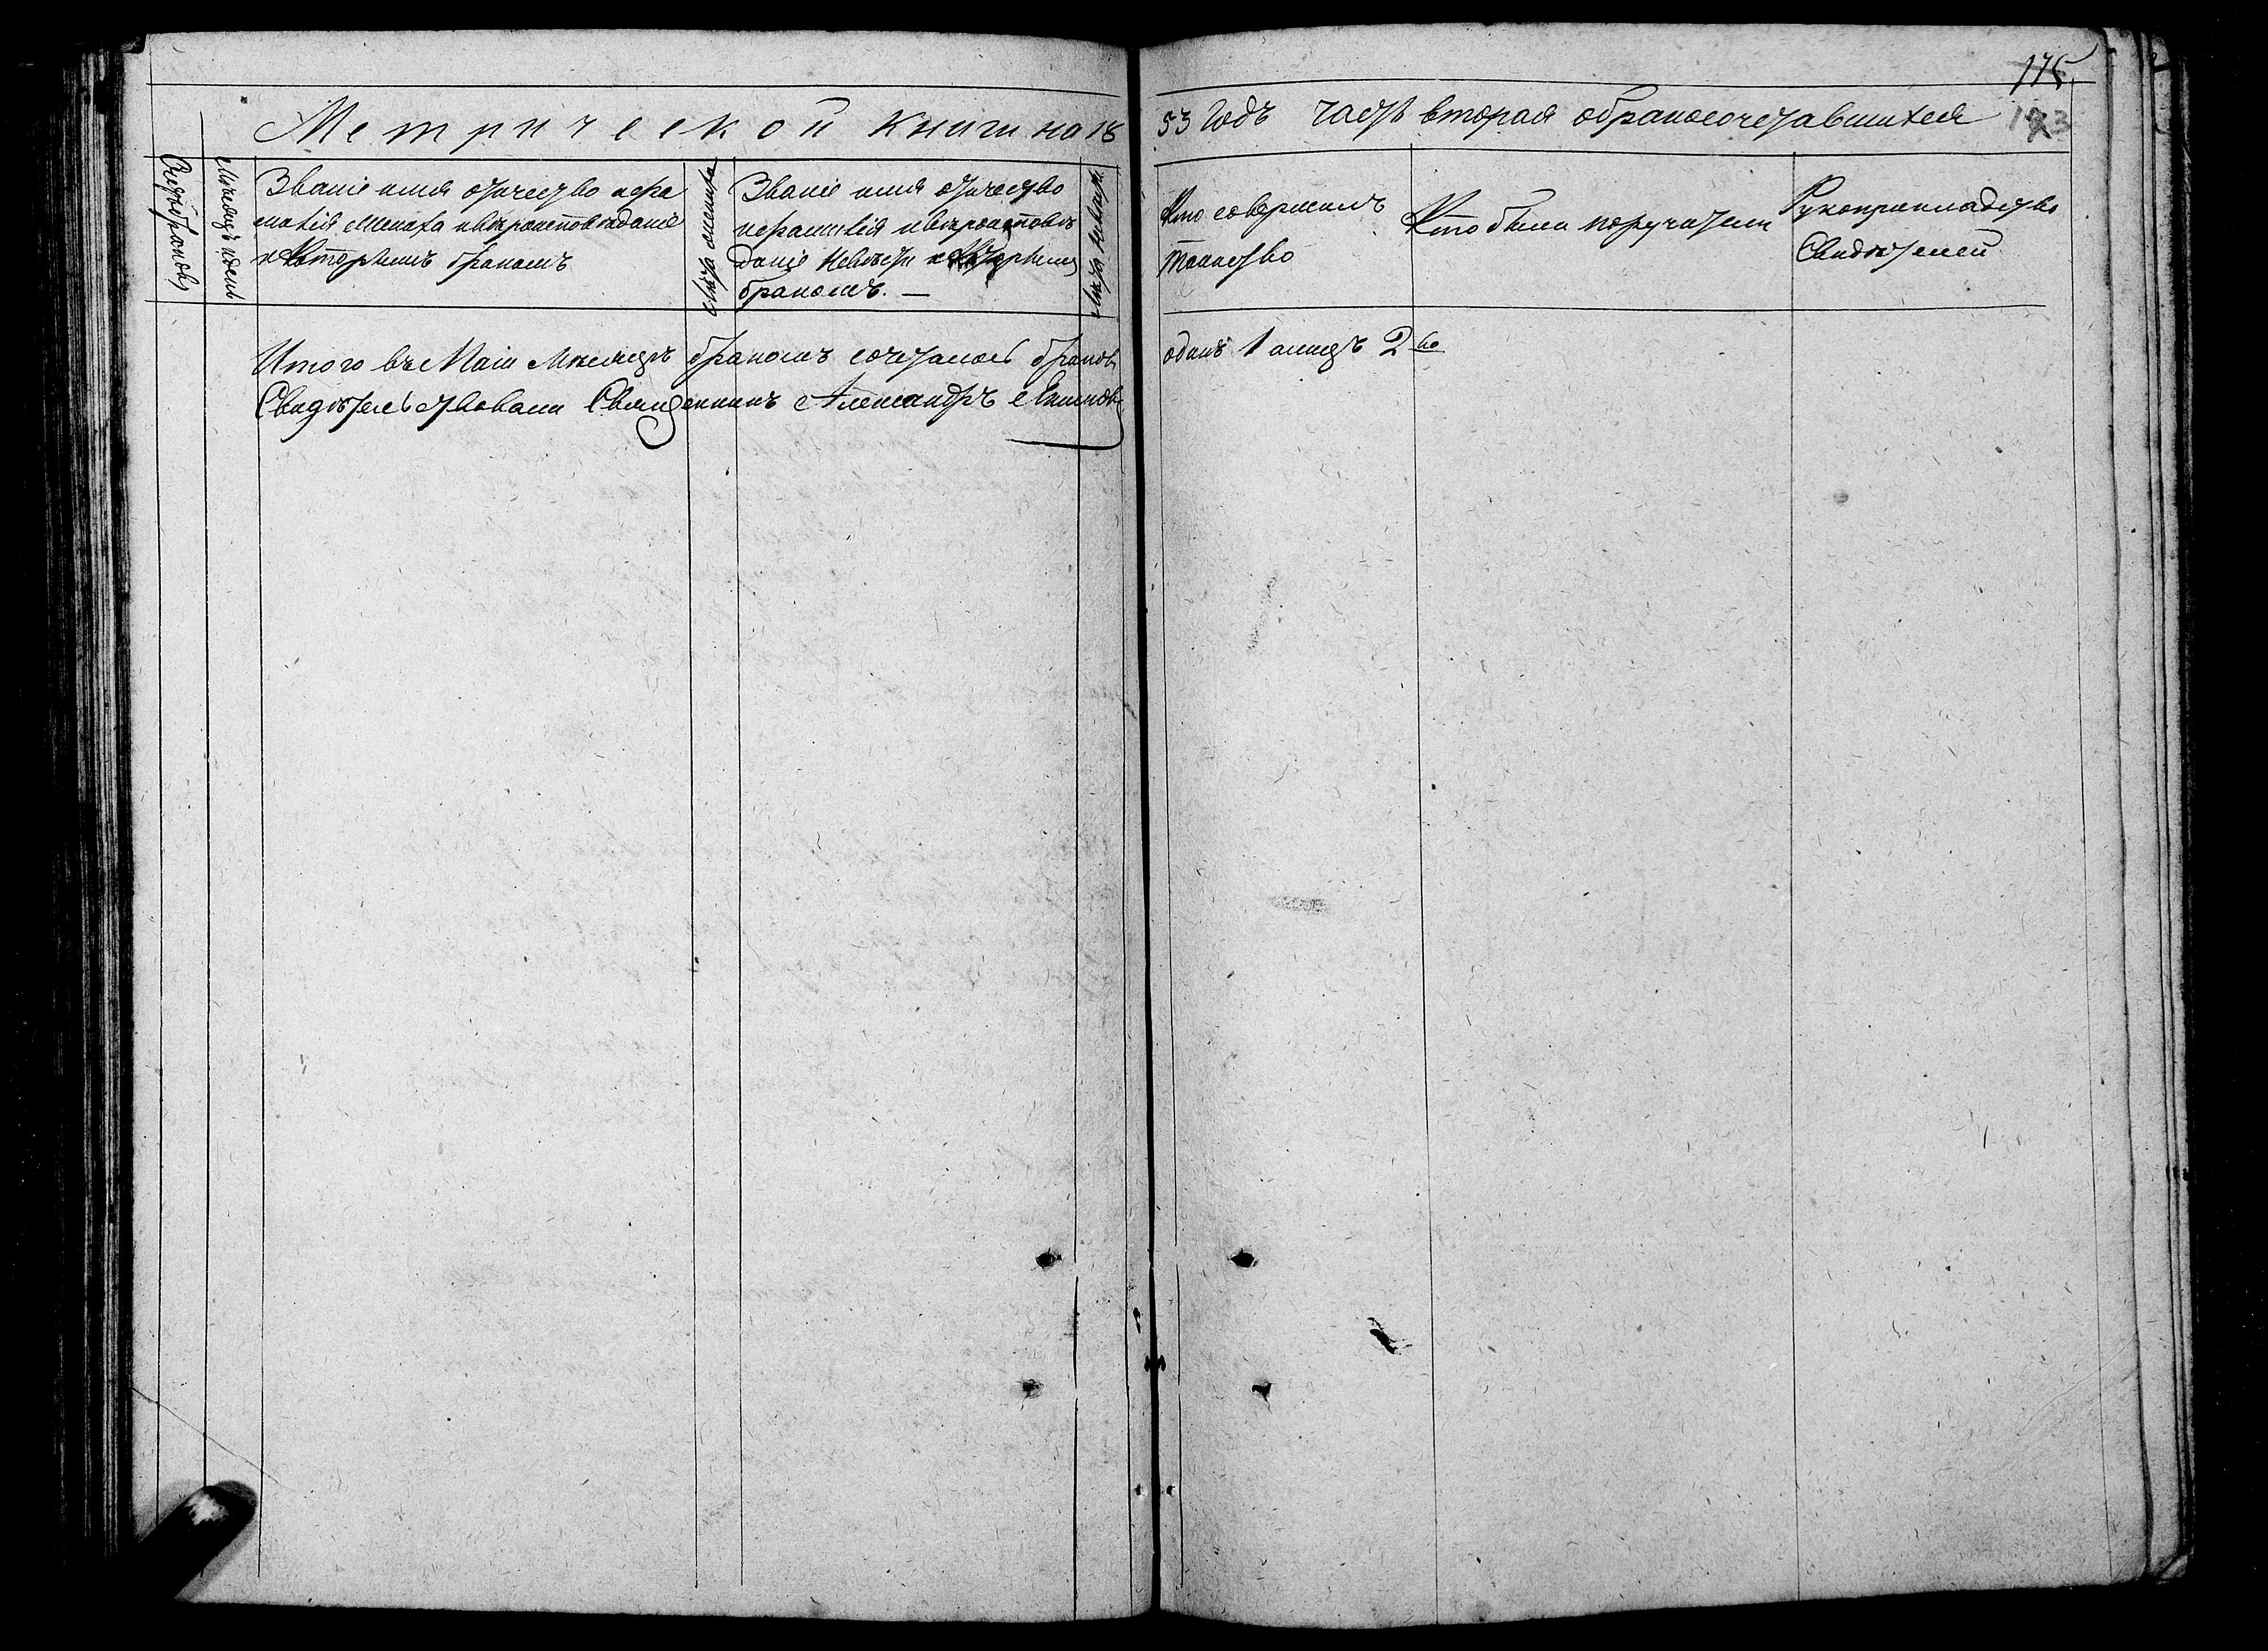 175
Метрической книги на 1853 годъ часть вторая о бракосочетавшихся 193
Счетъ браковъ
Месяцъ и день
Званіе имя отчество и фа
милія жениха и вероисповеданіе
и которымъ бракомъ
Лета жениха
Званіе имя отчество
и фамилія и вероисповѣ
даніе невесты и которымъ
бракомъ. —
Лета невесты
Кто совершилъ
таинство
Кто были поручители
Рукоприкладство
Свидѣтелей
Итого въ Маіи Месяцѣ бракомъ сочеталось браковъ одинъ 1 а лицъ 2 ва
Свидѣтельствовали Священникъ Александръ